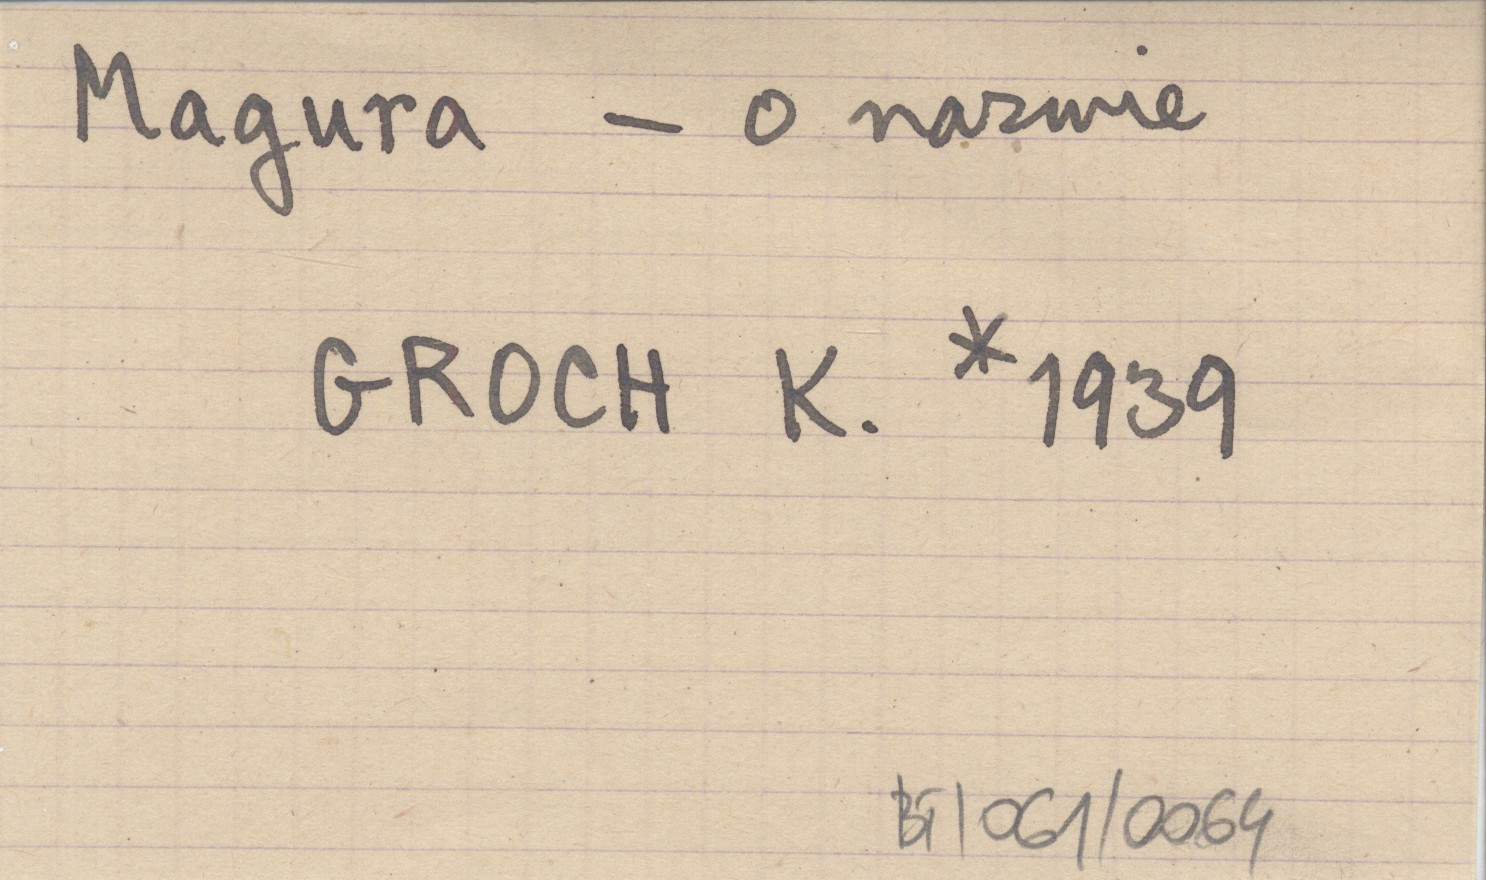 Magura – o nazwie
GROCH K. *1939
BT/061/0064